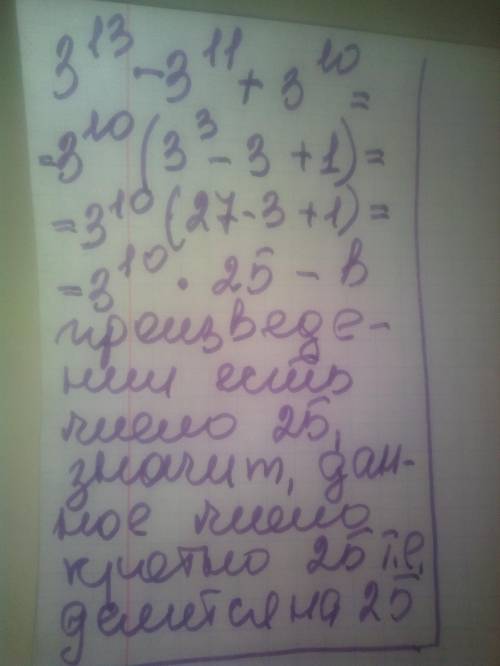 3¹³ - 3¹¹ + 3¹⁰ =
= 3¹⁰ (3³ - 3 + 1) =
= 3¹⁰ (27 - 3 + 1) =
= 3¹⁰ · 25 - в
произведе-
нии есть
число 25,
значит, дан-
ное число
кратно 25 т.е.
делится на 25